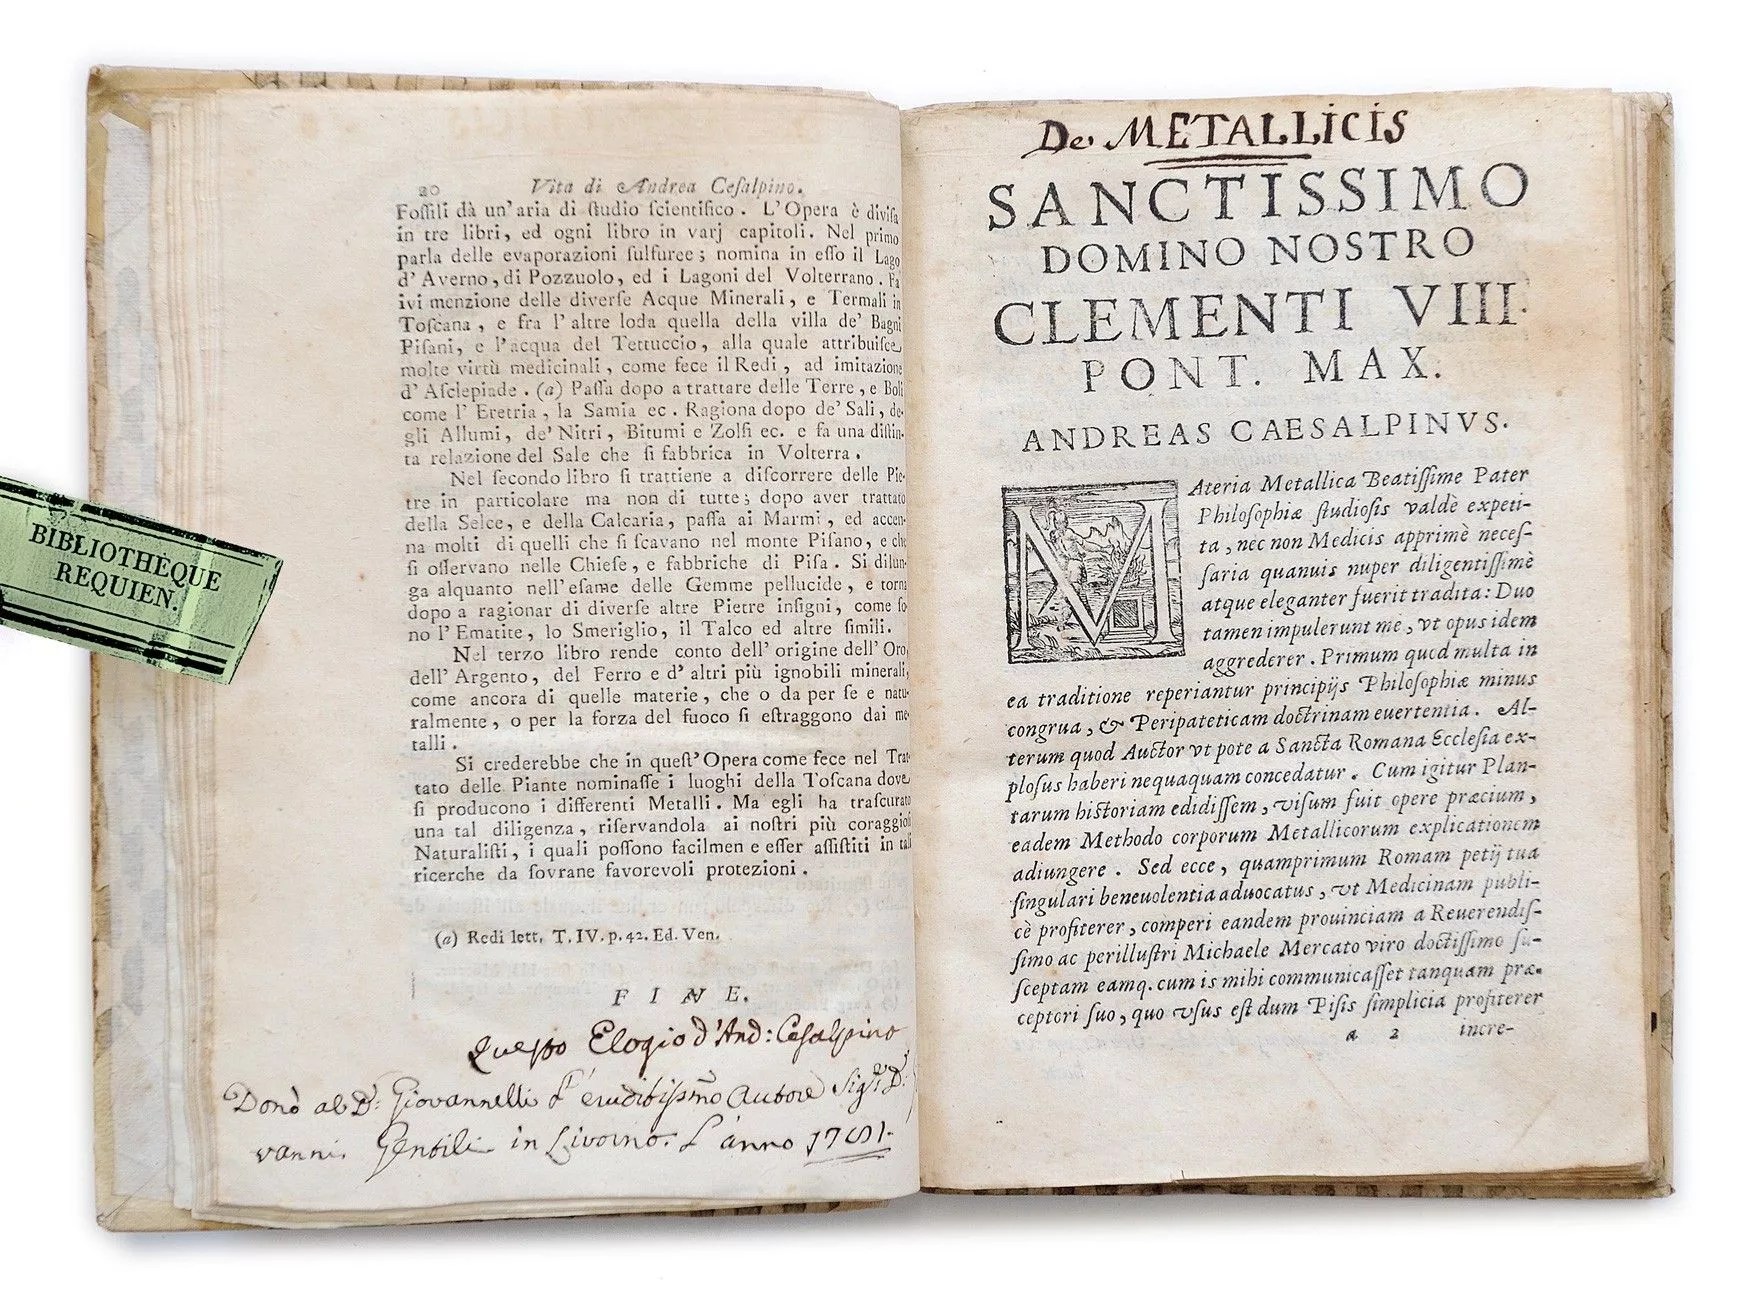 BIBLIOTHÈQUE
REQUIEN.
20 Vita di Andrea Cesalpino.
Fossili dà un'aria di studio scientifico. L'Opera è divisa
in tre libri, ed ogni libro in varj capitoli. Nel primo
parla delle evaporazioni sulfuree; nomina in esso il Lago
d'Averno, di Pozzuolo, ed i Lagoni del Volterrano. Fa
ivi menzione delle diverse Acque Minerali, e Termali in
Toscana, e fra l'altre loda quella della villa de' Bagni
Pisani, e l'acqua del Tettuccio, alla quale attribuisce
molte virtù medicinali, come fece il Redi, ad imitazione
d'Asclepiade. (a) Passa dopo a trattare delle Terre, e Boli
come l'Eretria, la Samia ec. Ragiona dopo de' Sali, de-
gli Allumi, de' Nitri, Bitumi e Zolfi ec. e fa una distin-
ta relazione del Sale che si fabbrica in Volterra.
Nel secondo libro si trattiene a discorrere delle Pie-
tre in particolare ma non di tutte; dopo aver trattato
della Selce, e della Calcaria, passa ai Marmi, ed accen-
na molti di quelli che si scavano nel monte Pisano, e che
si osservano nelle Chiese, e fabbriche di Pisa. Si dilun-
ga alquanto nell'esame delle Gemme pellucide, e torna
dopo a ragionar di diverse altre Pietre insigni, come so-
no l'Ematite, lo Smeriglio, il Talco ed altre simili.
Nel terzo libro rende conto dell'origine dell'Oro,
dell'Argento, del Ferro e d'altri più ignobili minerali,
come ancora di quelle materie, che o da per se e natu-
ralmente, o per la forza del fuoco si estraggono dai me-
talli.
Si crederebbe che in quest'Opera come fece nel Trat-
tato delle Piante nominasse i luoghi della Toscana dove
si producono i differenti Metalli. Ma egli ha trascurato
una tal diligenza, riservandola ai nostri più coraggiosi
Naturalisti, i quali possono facilmen e esser assistiti in tali
ricerche da sovrane favorevoli protezioni.
(a) Redi lett. T. IV. p. 42. Ed. Ven.
FINE.
Questo Elogio d'And: Cesalpino
Donò al D: Giovannelli l'eruditissmo Autore Sigr. D:
vanni Gentili in Livorno. L'anno
De METALLICIS
SANCTISSIMO
DOMINO NOSTRO
CLEMENTI VIII.
PONT. MAX.
ANDREAS CAESALPINVS.
MAteria Metallica Beatissime Pater
Philosophiæ studiosis valdè expeti-
ta, nec non Medicis apprimè neces-
saria quanuis nuper diligentissimè
atque eleganter fuerit tradita: Duo
tamen impulerunt me, vt opus idem
aggrederer. Primum quod multa in
ea traditione reperiantur principijs Philosophiæ minus
congrua, & Peripateticam doctrinam euertentia. Al-
terum quod Auctor vt pote a Sancta Romana Ecclesia ex-
plosus haberi nequaquam concedatur. Cum igitur Plan-
tarum historiam edidissem, visum fuit opere præcium,
eadem Methodo corporum Metallicorum explicationem
adiungere. Sed ecce, quamprimum Romam petij tua
singulari beneuolentia aduocatus, vt Medicinam publi-
cè profiterer, comperi eandem prouinciam a Reuerendis-
simo ac perillustri Michaele Mercato viro doctissimo su-
sceptam eamq. cum is mihi communicasset tanquam præ-
ceptori suo, quo vsus est dum Pisis simplicia profiterer
a 2 incre-